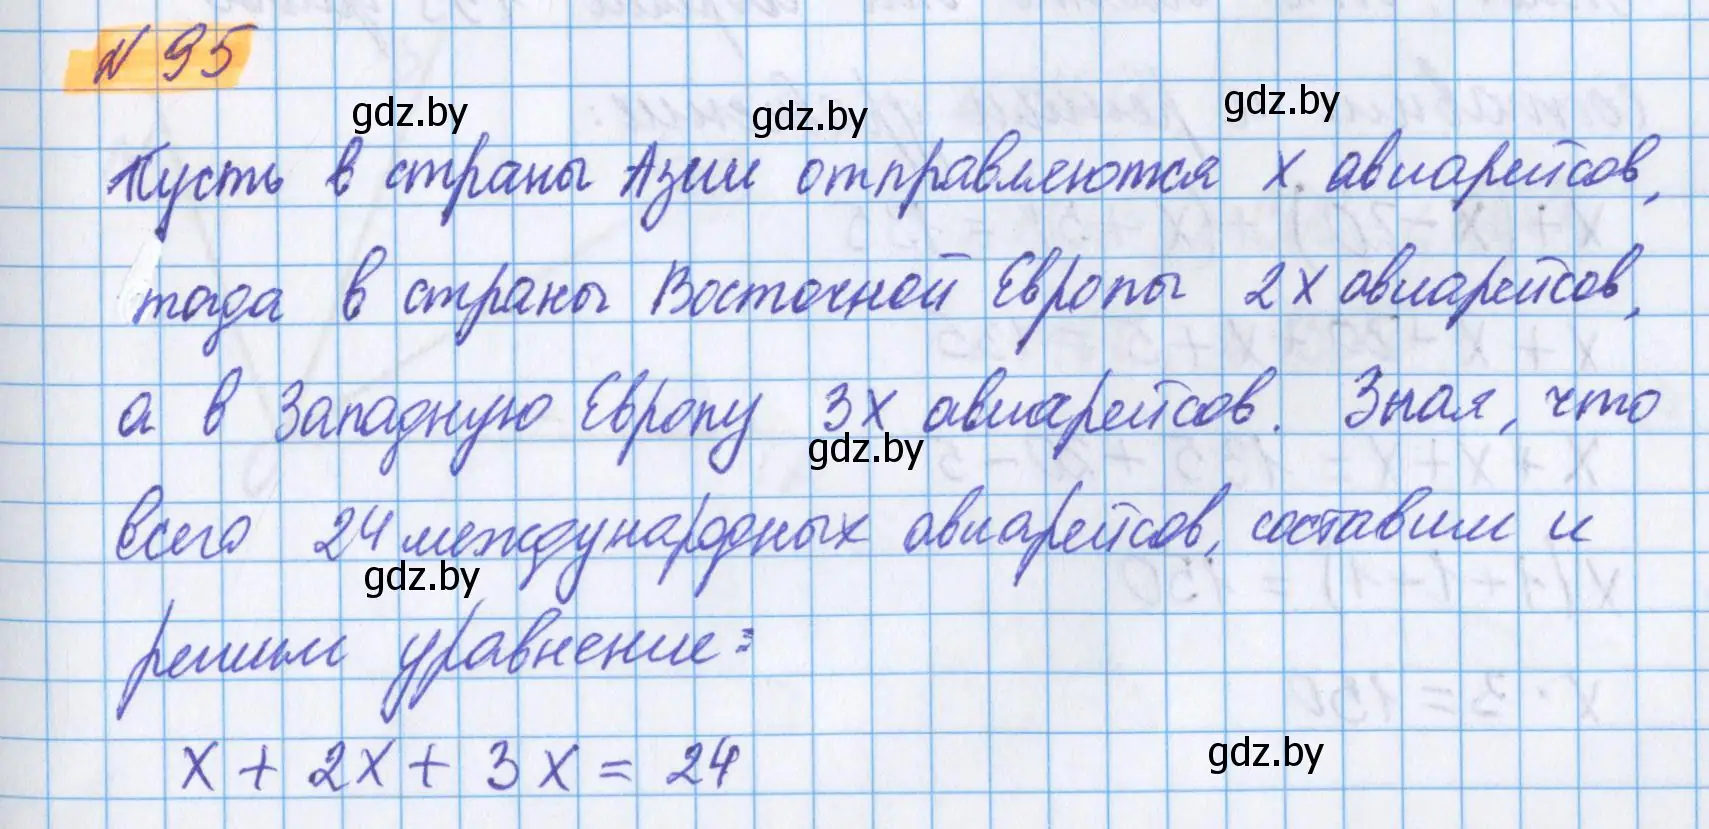 № 95
gdz.by gdz.by gdz.by
Пусть в страны Азии отправляются х авиарейсов,
тогда в страны Восточной Европы 2х авиарейсов,
а в Западную Европу 3х авиарейсов. Зная, что
gdz.by
всего 24 международных авиарейсов, составим и
gdz.by
решим уравнение:
gdz.by
х + 2х + 3х = 24